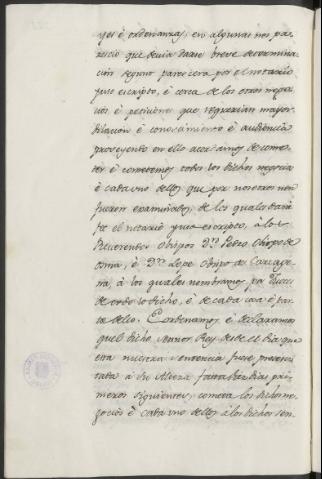 yes è ordenanzas, en algunas nos pa-
reció que devia darse breve determina-
ción segund parescerá por el notario
yuso escripto, è cerca de los otros nego-
cios è peticiones que requerian mayor
dilacion è conoscimiento è audiencia
proveyendo en ello acordamos de come-
ter è cometemos todos los dichos negocios
è cada uno dellos que por nosotros non
fueron examinados, de los quales dará
fe el notario yuso escripto, à los
Reverendos Obispos Dn. Pedro Obispo de
Osma, è Dn. Lope Obispo de Cartage-
na, à los quales nombramos por Jueces
de todo lo dicho, è de cada cosa è par-
te dello. E ordenamos è declaramos
quel dicho Señor Rey desde el dia que
esta nuestra sentencia fuere presen-
tada à su Alteza fasta diez dias pri-
meros siguientes, cometa los dichos ne-
gocios è cada uno dellos à los dichos Sen-